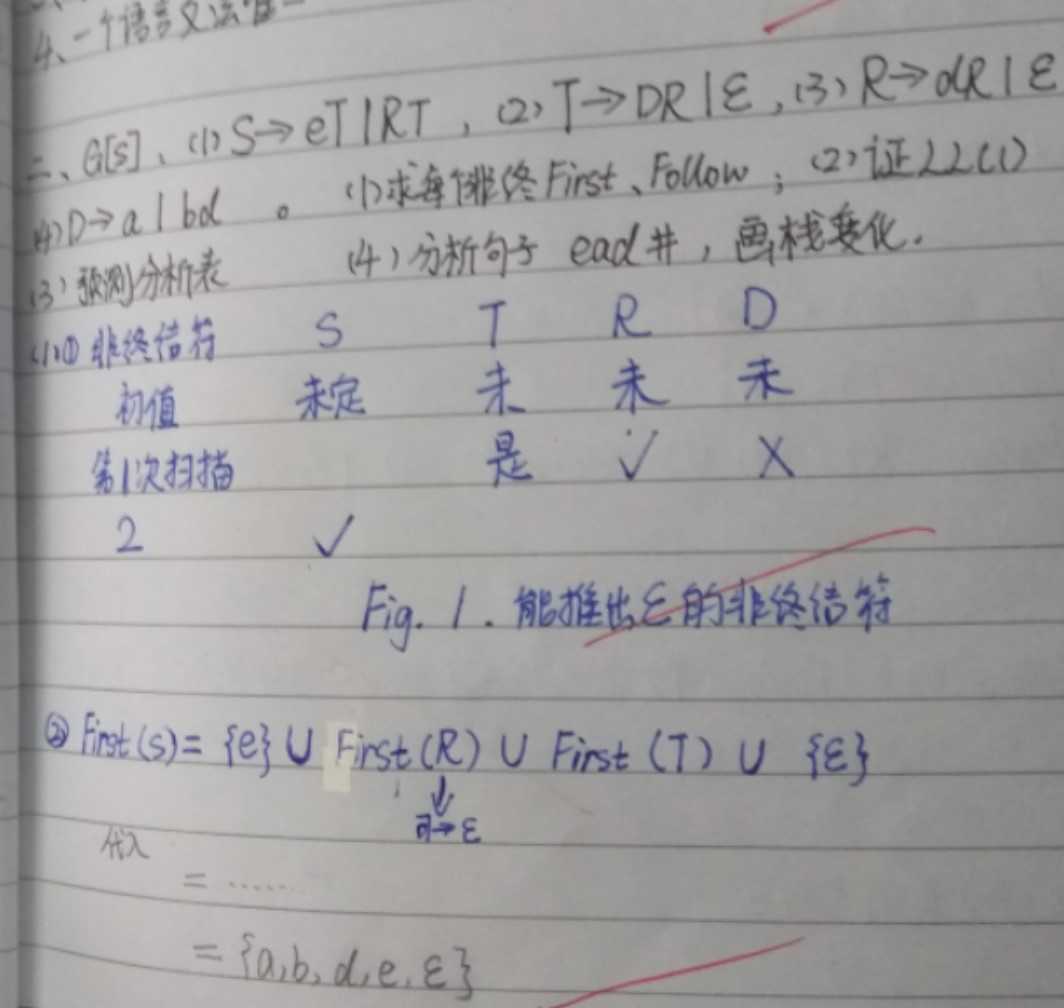 4、一个语言文法
二、G[S]、(1) S→eT|RT，(2) T→DR|ε，(3) R→dR|ε
(4) D→a|bd。 (1)求每个非终First、Follow；(2)证LL(1)
(3)预测分析表 (4)分析句子 ead#，画栈变化.
(1)① 非终结符 S T R D
初值 未定 未 未 未
第1次扫描 是 √ X
2 √
Fig. 1. 能推出ε的非终结符
② First(S) = {e} ∪ First(R) ∪ First(T) ∪ {ε}
↓
可→ε
代入
= ......
= {a,b,d,e,ε}